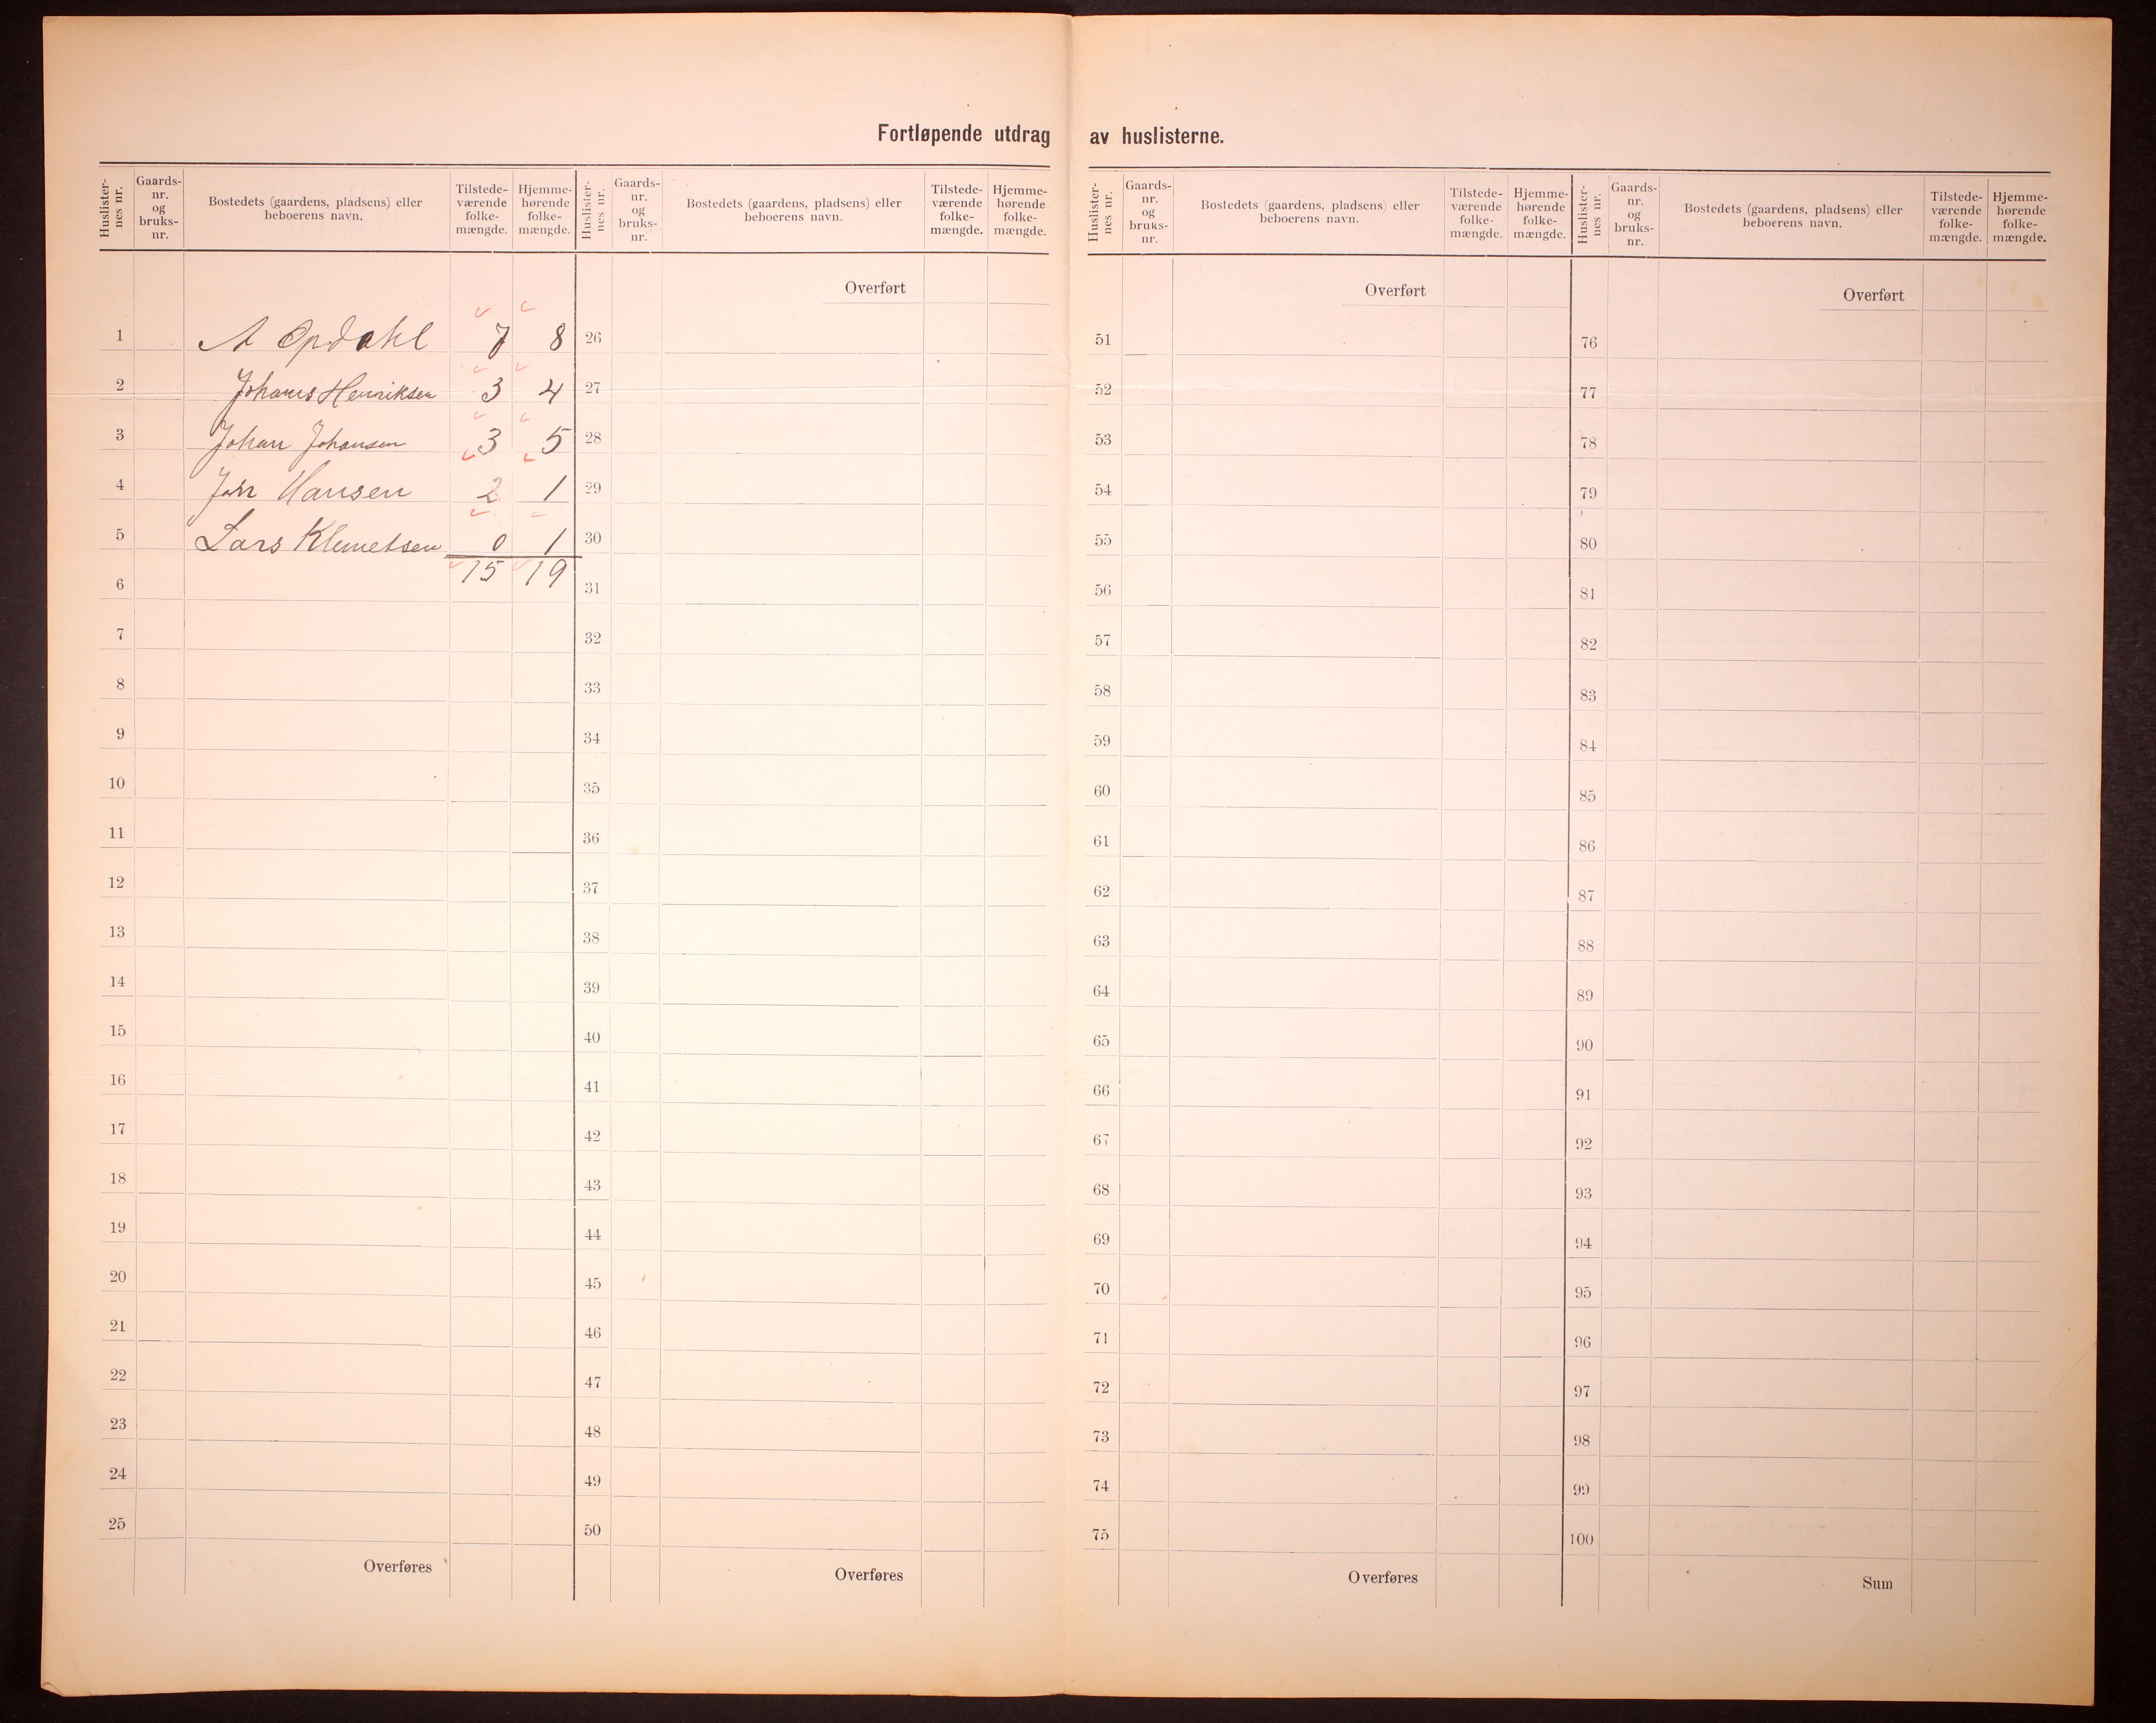 Fortløpende utdrag av huslisterne.
Huslister-nes nr. Gaards-nr. og bruks-nr. Bostedets (gaardens, pladsens) eller beboerens navn. Tilstede-værende folke-mængde. Hjemme-hørende folke-mængde.
1 A Opdahl 7 8
2 Johans Henriksen 3 4
3 Johan Johansen 3 5
4 John Hansen 2 1
5 Lars Klemetsen 0 1
6 15 19
7
8
9
10
11
12
13
14
15
16
17
18
19
20
21
22
23
24
25
Overføres
Huslister-nes nr. Gaards-nr. og bruks-nr. Bostedets (gaardens, pladsens) eller beboerens navn. Tilstede-værende folke-mængde. Hjemme-hørende folke-mængde.
Overført
26
27
28
29
30
31
32
33
34
35
36
37
38
39
40
41
42
43
44
45
46
47
48
49
50
Overføres
Huslister-nes nr. Gaards-nr. og bruks-nr. Bostedets (gaardens, pladsens) eller beboerens navn. Tilstede-værende folke-mængde. Hjemme-hørende folke-mængde.
Overført
51
52
53
54
55
56
57
58
59
60
61
62
63
64
65
66
67
68
69
70
71
72
73
74
75
Overføres
Huslister-nes nr. Gaards-nr. og bruks-nr. Bostedets (gaardens, pladsens) eller beboerens navn. Tilstede-værende folke-mængde. Hjemme-hørende folke-mængde.
Overført
76
77
78
79
80
81
82
83
84
85
86
87
88
89
90
91
92
93
94
95
96
97
98
99
100
Sum